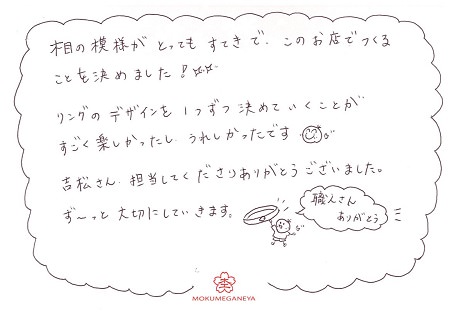 木目の模様が とっても すてきで、このお店でつくる
ことを決めました!☆☆
リングの デザインを 1つずつ 決めて いくことが
すごく 楽しかったし、うれしかったです
吉松さん、担当してくださりありがとうございました。
ず〜っと 大切にしていきます。
職人さん
ありがとう
MOKUMEGANEYA